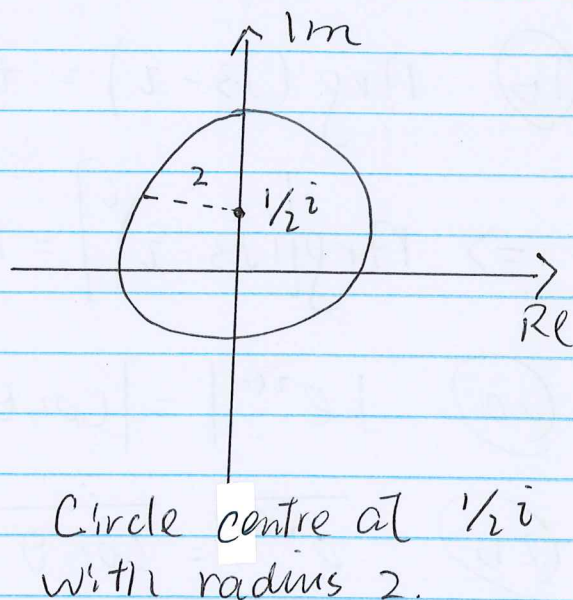 Im
2
1/2 i
Re
Circle centre at 1/2 i
with radius 2.